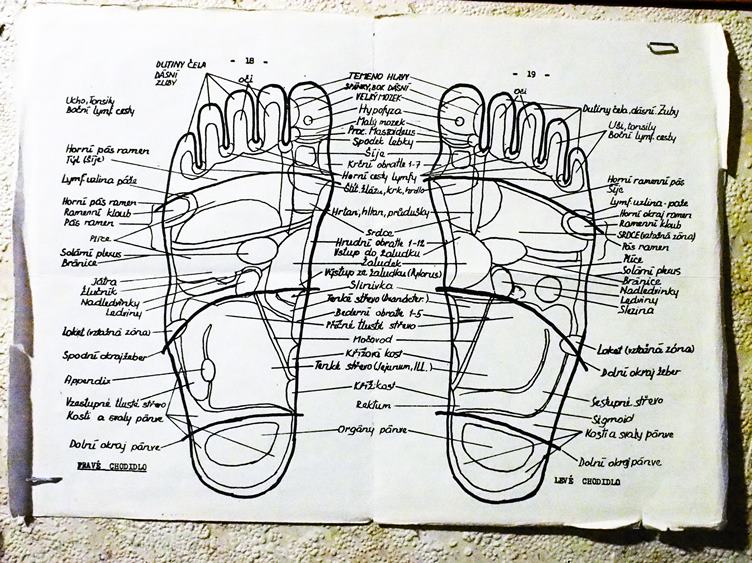 - 18 -
DUTINY ČELA
DÁSNÍ
ZUBY
oči
Ucho, tonsily
Boční lymf. cesty
Horní pás ramen
Týl (Šíje)
Lymf. uzlina páže
Horní pás ramen
Ramenní kloub
Pás ramen
Plíce
Solární plexus
Bránice
Játra
Žlučník
Nadledvinky
Ledviny
Loket (vztažná zóna)
Spodní okraj žeber
Appendix
Vzestupné tlusté střevo
Kosti a svaly pánve
Dolní okraj pánve
PRAVÉ CHODIDLO
TEMENO HLAVY
SPÁNKY, BOK DÁSNÍ
VELKÝ MOZEK
Hypofýza
Malý mozek
Proc. Mastoideus
Spodek lebky
Šíje
Krční obratle 1-7
Horní cesty lymfy
Štít. žláza, krk, hrdlo
Hrtan, hltan, průdušky
Srdce
Hrudní obratle 1-12
Vstup do žaludku
Žaludek
Výstup ze žaludku (Pylorus)
Slinivka
Tenké střevo
Bederní obratle 1-5
Příčné tlusté střevo
Močovod
Křížová kost
Tenké střevo (Jejunum, Ill.)
Kříž. kost
Rektum
Orgány pánve
- 19 -
oči
Dutiny čela, dásní. Zuby
Uši, tonsily
Boční lymf. cesty
Horní ramenní pás
Šíje
Lymf. uzlina - páže
Horní okraj ramen
Ramenní kloub
SRDCE (vztažná zóna)
Pás ramen
Plíce
Solární plexus
Bránice
Nadledvinky
Ledviny
Slezina
Loket (vztažná zóna)
Dolní okraj žeber
Sestupné střevo
Sigmoid
Kosti a svaly pánve
Dolní okraj pánve
LEVÉ CHODIDLO